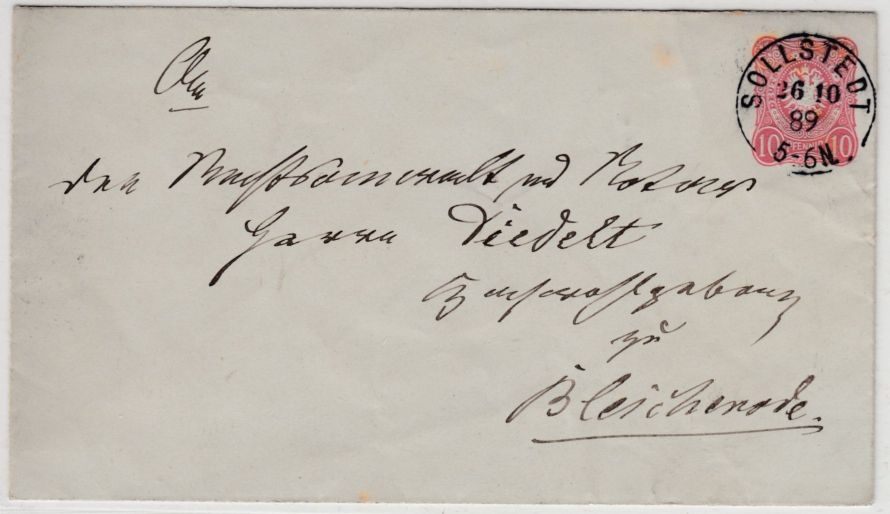 SOLLSTEDT
26 10
89
5-6N.
10 PFENNIG 10
An
den Rechtsanwalt und Notar
Herrn Diedelt
Hochwohlgeboren
zu
Bleicherode.